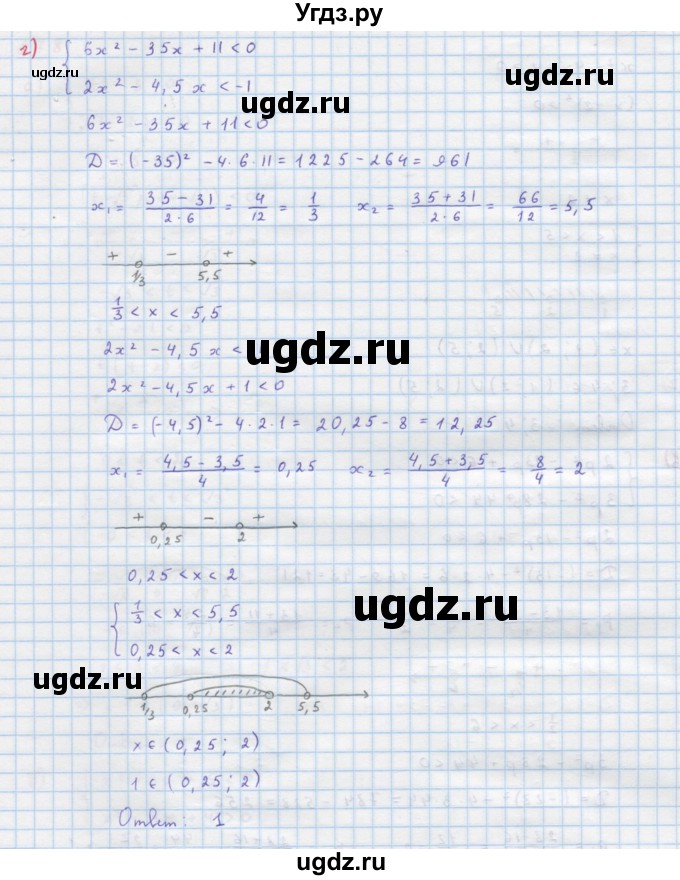 Угдз.ру
г) { 6x² - 35x + 11 < 0
ugdz.ru
2x² - 4,5x < -1
ugdz.ru
ugdz.ru
6x² - 35x + 11 < 0
D = (-35)² - 4·6·11 = 1225 - 264 = 961
x₁ = (35 - 31)/(2·6) = 4/12 = 1/3 x₂ = (35 + 31)/(2·6) = 66/12 = 5,5
+ - +
1/3 5,5
1/3 < x < 5,5
2x² - 4,5x <
ugdz.ru
2x² - 4,5x + 1 < 0
D = (-4,5)² - 4·2·1 = 20,25 - 8 = 12,25
x₁ = (4,5 - 3,5)/4 = 0,25 x₂ = (4,5 + 3,5)/4 = 8/4 = 2
+ - +
0,25 2
0,25 < x < 2
{ 1/3 < x < 5,5
ugdz.ru
0,25 < x < 2
ugdz.ru
1/3 0,25 2 5,5
x ∈ (0,25; 2)
ugdz.ru
1 ∈ (0,25; 2)
Ответ: 1
ugdz.ru